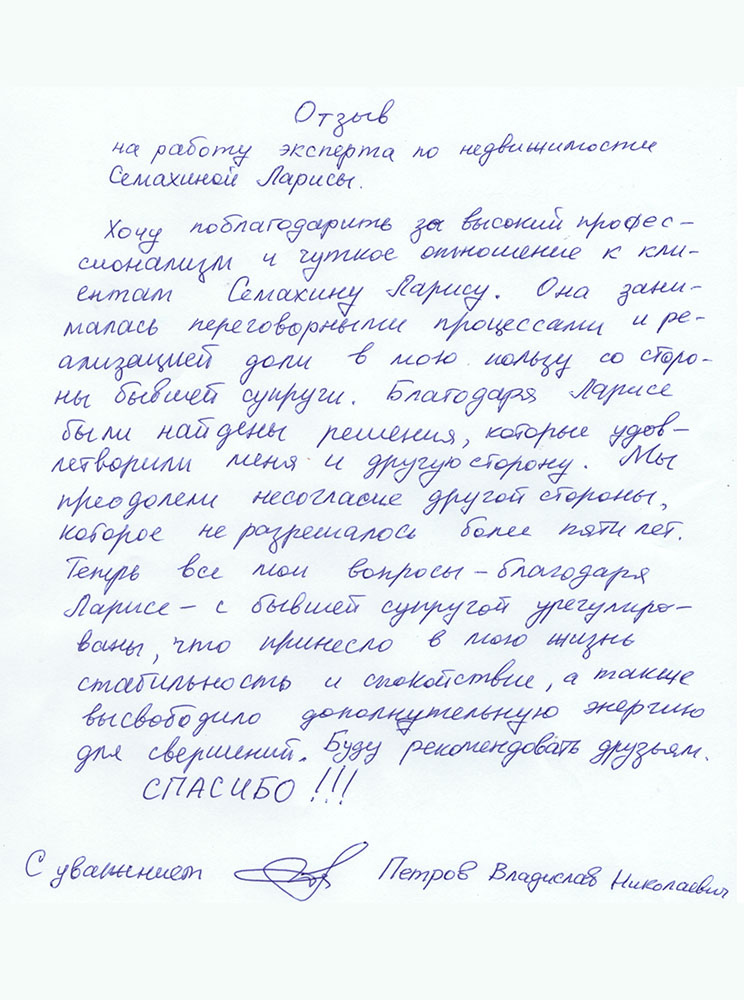 Отзыв
на работу эксперта по недвижимости
Семахиной Ларисы.
Хочу поблагодарить за высокий профес-
сионализм и чуткое отношение к кли-
ентам Семахину Ларису. Она зани-
малась переговорными процессами и ре-
ализацией доли в мою пользу со сторо-
ны бывшей супруги. Благодаря Ларисе
были найдены решения, которые удов-
летворили меня и другую сторону. Мы
преодолели несогласие другой стороны,
которое не разрешалось более пяти лет.
Теперь все мои вопросы – благодаря
Ларисе – с бывшей супругой урегулиро-
ваны, что принесло в мою жизнь
стабильность и спокойствие, а также
высвободило дополнутельную энергию
для свершений. Буду рекомендовать друзьям.
СПАСИБО!!!
С уважением Петров Владислав Николаевич